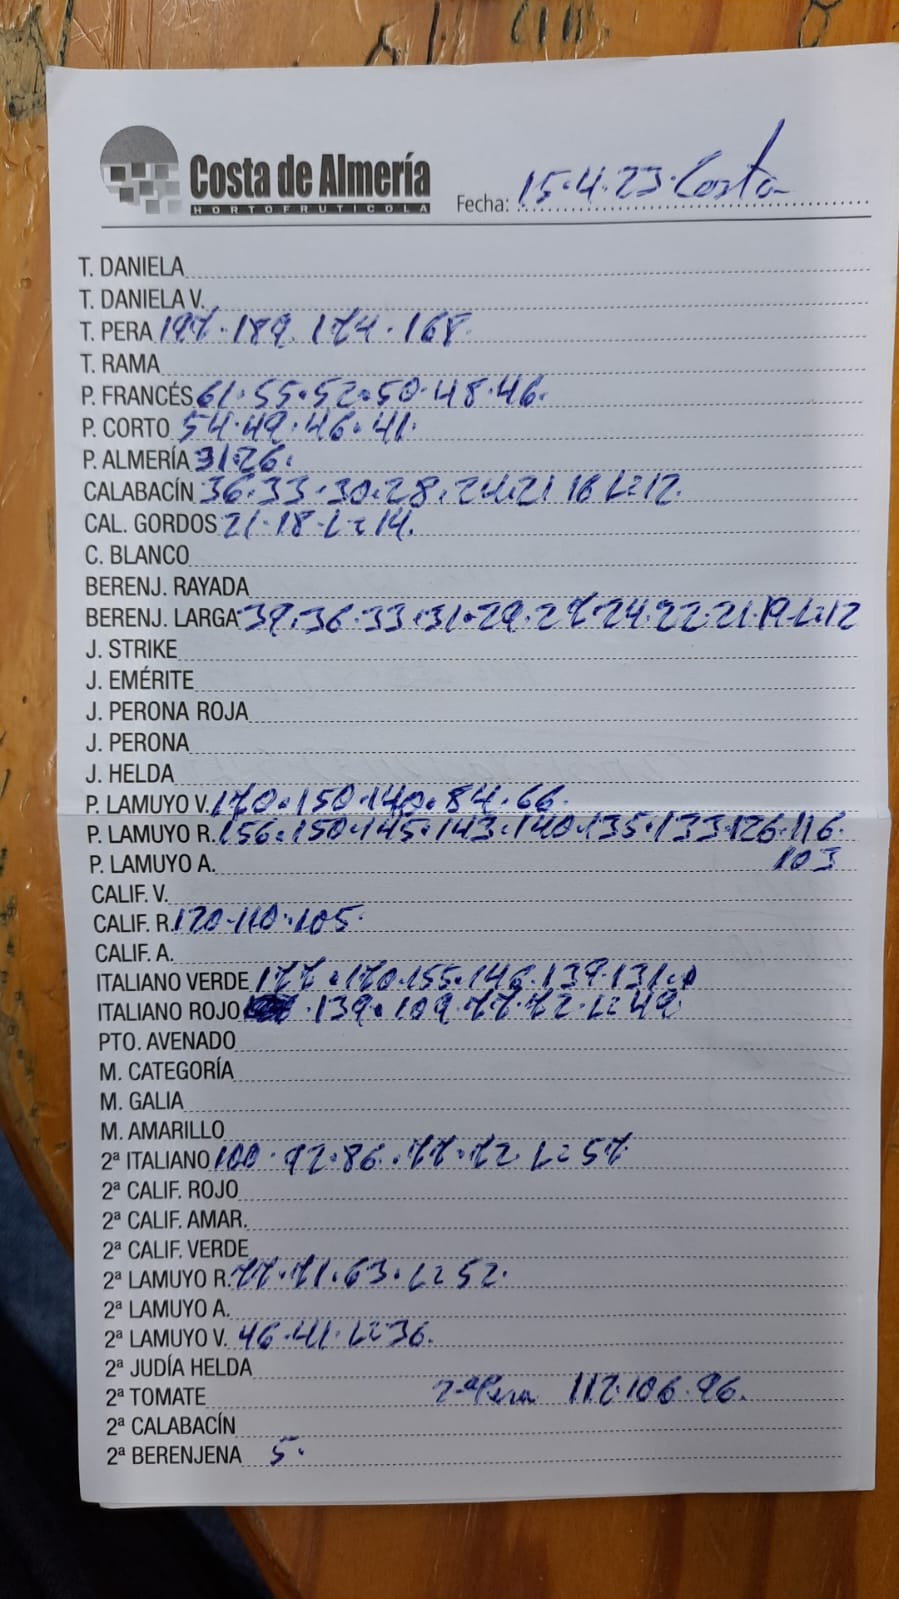 Costa de Almería
HORTOFRUTICOLA
Fecha: 15.4.23. Costa
T. DANIELA
T. DANIELA V.
T. PERA 197. 189. 174. 168.
T. RAMA
P. FRANCÉS 61. 55. 52. 50. 48. 46.
P. CORTO 54. 49. 46. 41.
P. ALMERÍA 31. 26.
CALABACÍN 36. 33. 30. 28. 24. 21 18 L=12.
CAL. GORDOS 21. 18. L=14.
C. BLANCO
BERENJ. RAYADA
BERENJ. LARGA 39. 36. 33. 31. 29. 27. 24. 22. 21. 19. L=12
J. STRIKE
J. EMÉRITE
J. PERONA ROJA
J. PERONA
J. HELDA
P. LAMUYO V. 170. 150. 140. 84. 66.
P. LAMUYO R. 156. 150. 145. 143. 140. 135. 133. 126. 116.
P. LAMUYO A. 103
CALIF. V.
CALIF. R. 120. 110. 105.
CALIF. A.
ITALIANO VERDE 177. 170. 155. 146. 139. 131.
ITALIANO ROJO . 139. 109. 77. 72. L=49
PTO. AVENADO
M. CATEGORÍA
M. GALIA
M. AMARILLO
2ª ITALIANO 100. 92. 86. 77. 72. L=57
2ª CALIF. ROJO
2ª CALIF. AMAR.
2ª CALIF. VERDE
2ª LAMUYO R. 77. 71. 63. L=52.
2ª LAMUYO A.
2ª LAMUYO V. 46. 41. L=36.
2ª JUDÍA HELDA
2ª TOMATE 2ª Pera 112. 106. 96.
2ª CALABACÍN
2ª BERENJENA 5.